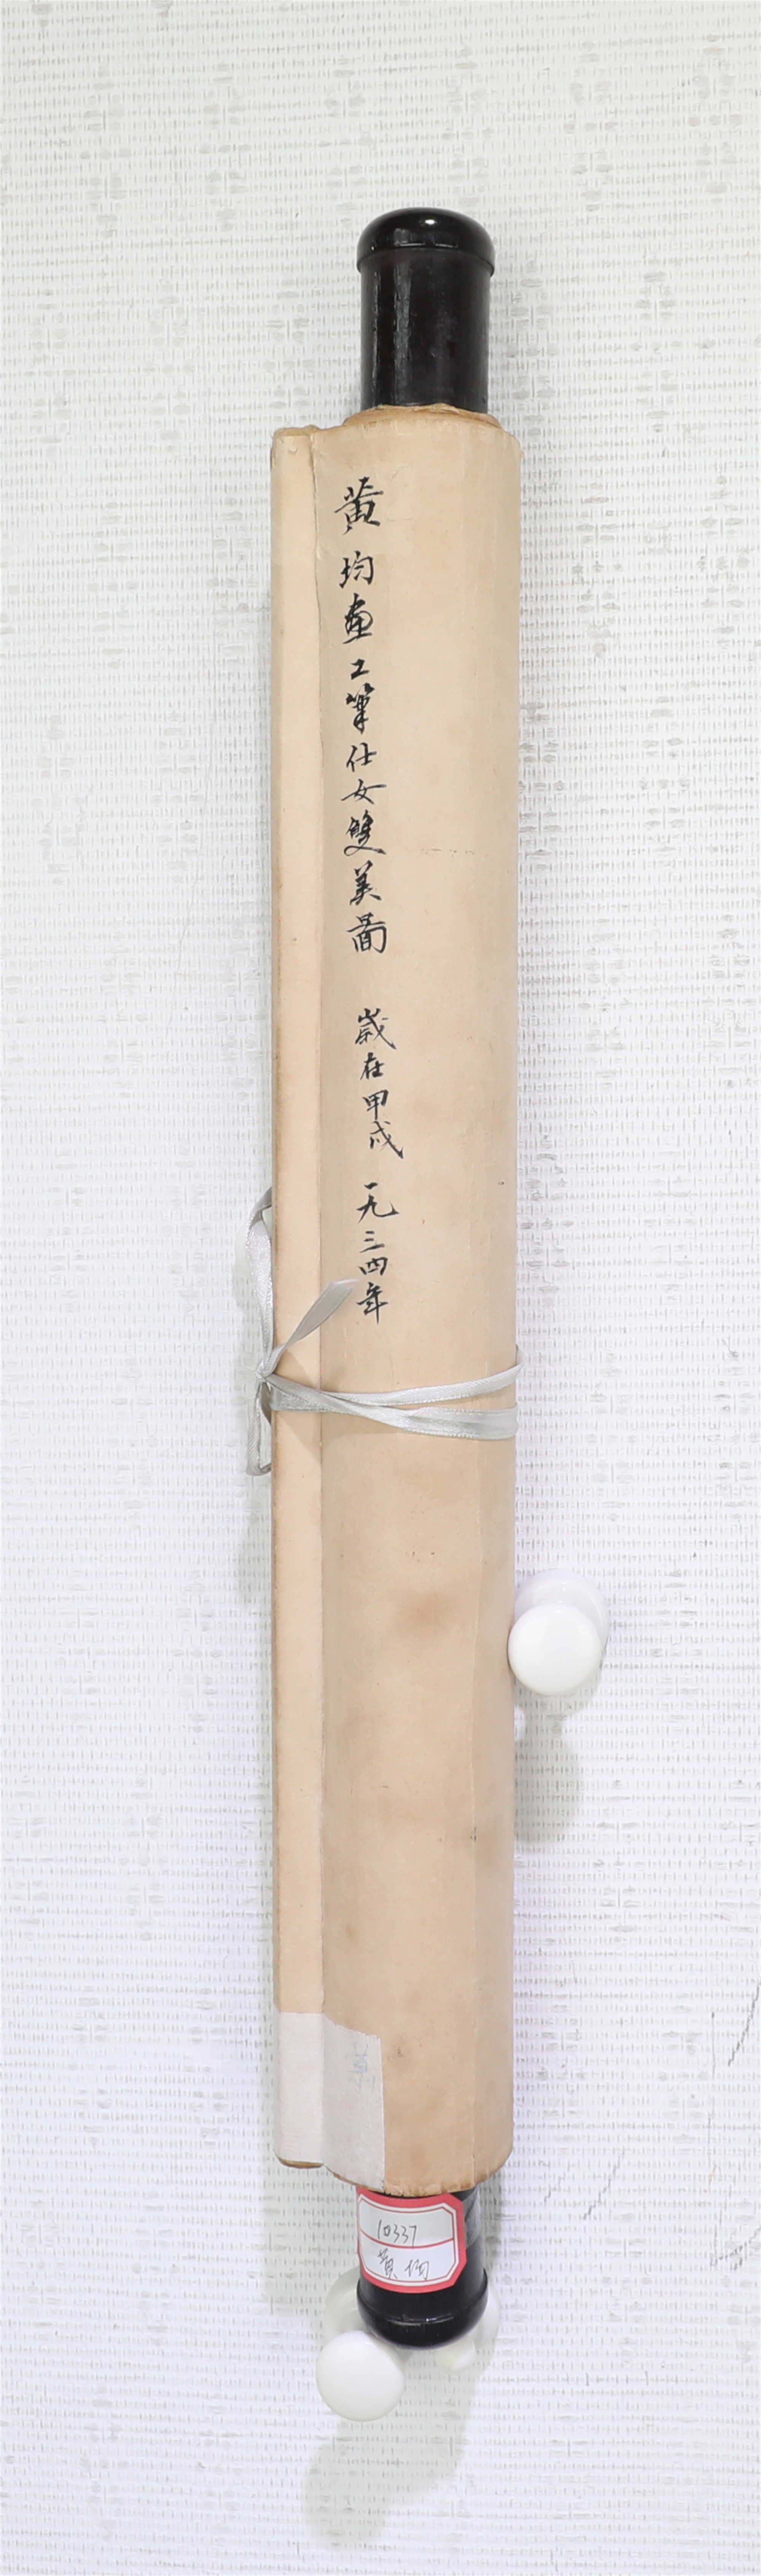 黄均畫工筆仕女雙美圖 歲在甲戌 一九三四年
10337
黄均